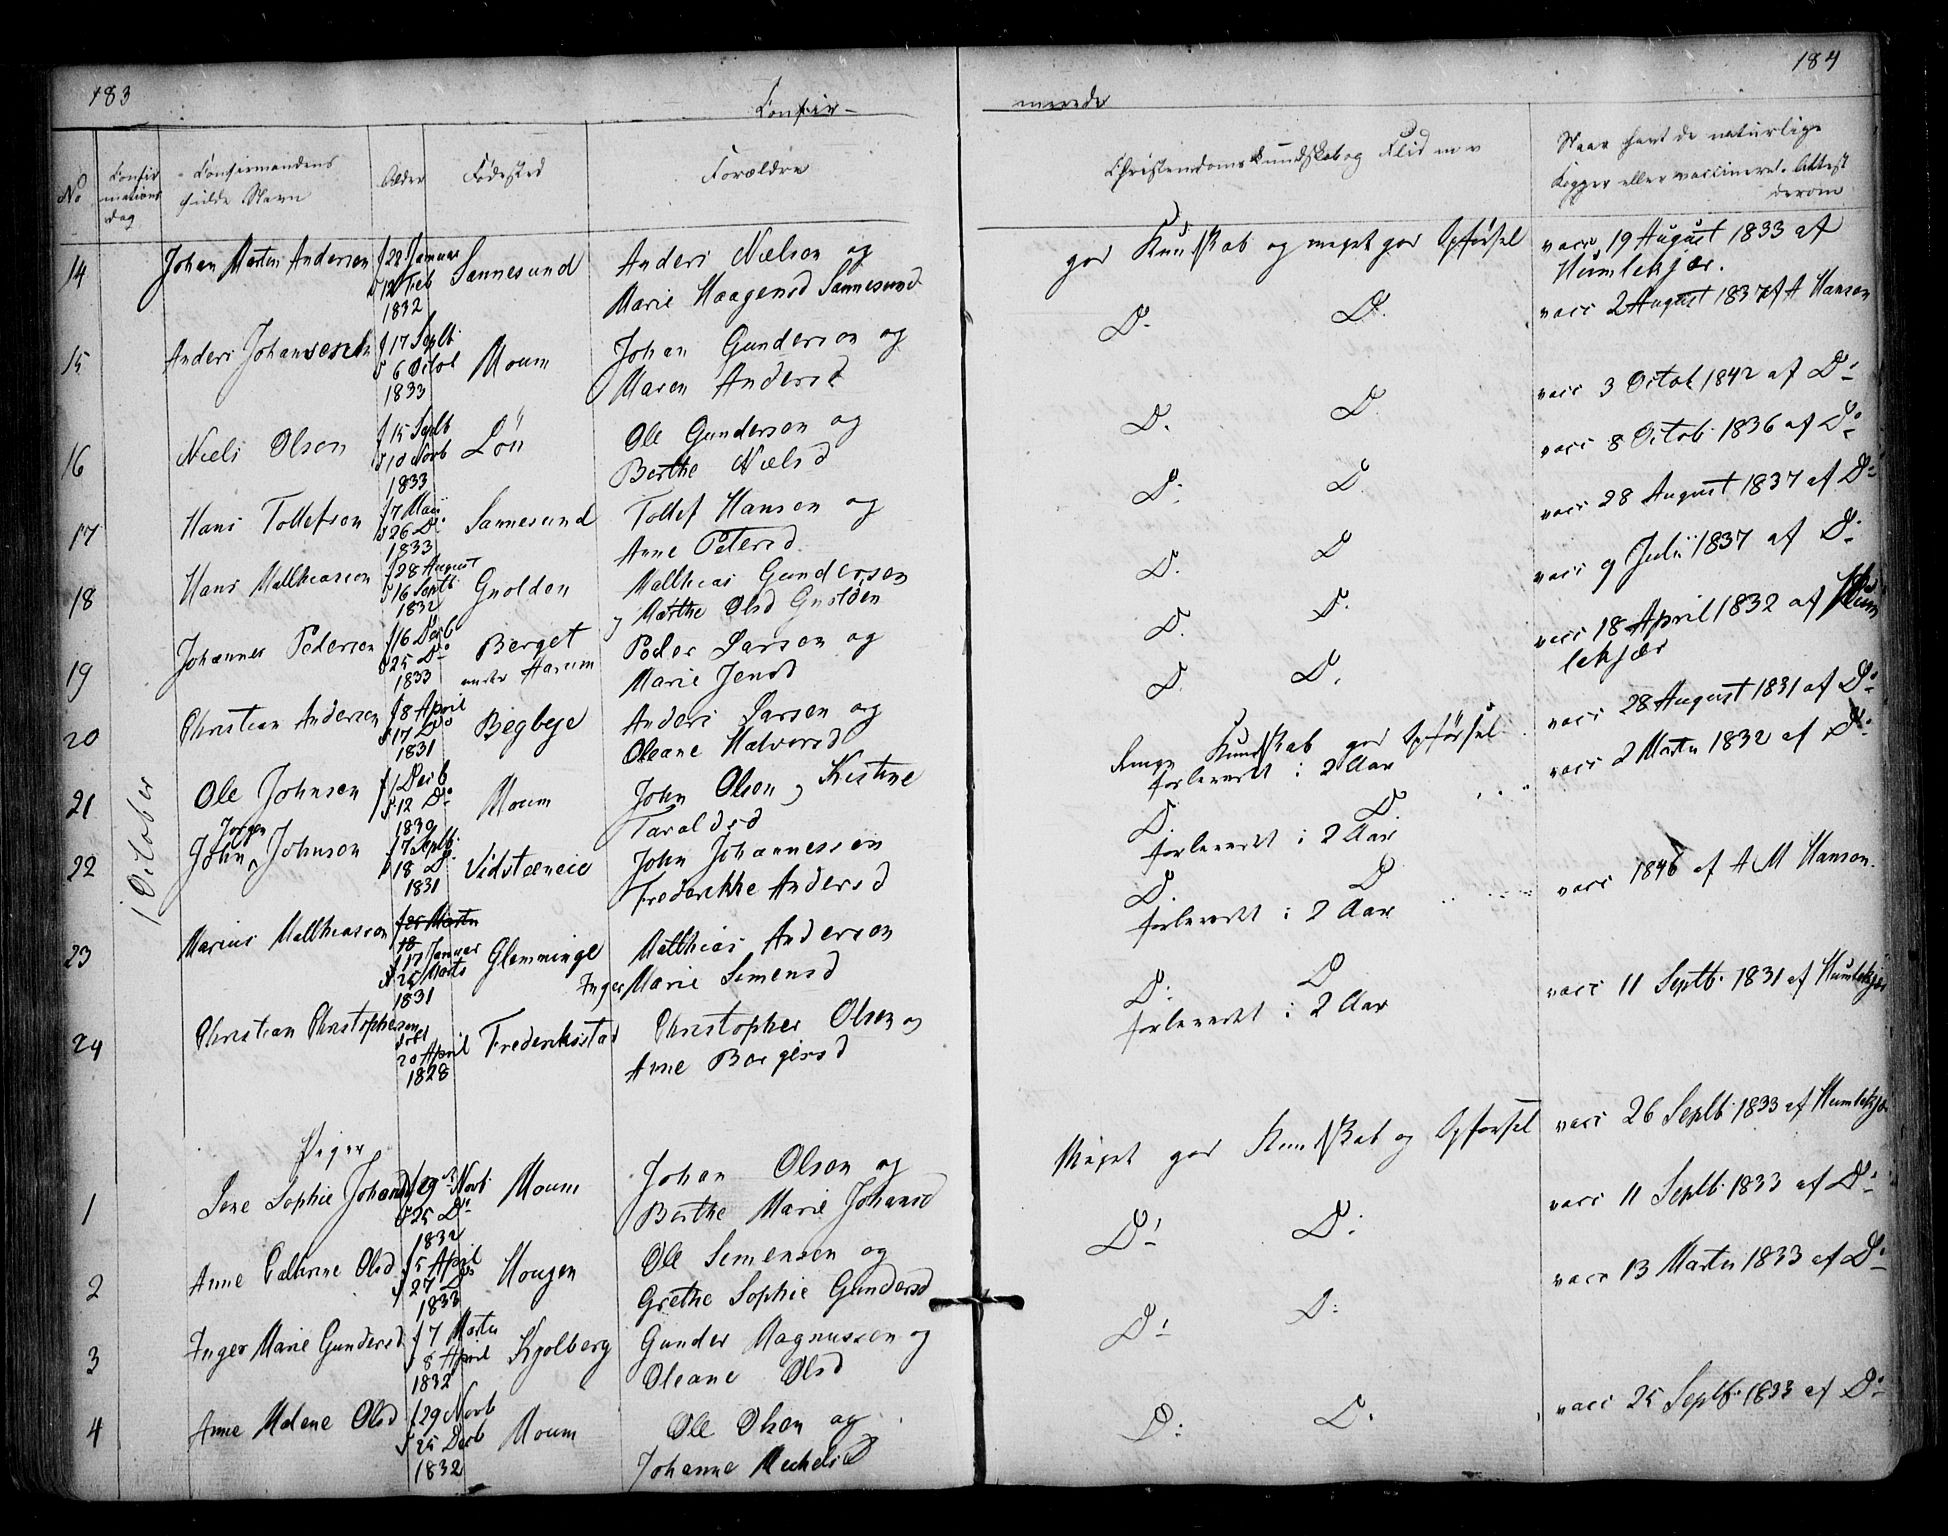 183
184
Confir-
merede
No
Confir
mations
dag
Confirmandens
fulde Navn
Alder
Fødested
Forældre
Christendoms Kundskab og Flid m v
Naar havt de naturlige
Kopper eller vaccineret. Attest
derom
1 October
14 Johan Martin Andersen f 22 Januar
d 12 Feb
1832
Sannesund
Anders Nielsen og
Marie Haagensd Sannesund
god Kundskab og meget god Opførsel
vacc 19 August 1833 af
Humlekjær.
15 Anders Johansen
f 17 Septb
d 6 Octob
1833
Moum
Johan Gunderson og
Maren Andersd
D. D.
vacc 2 August 1837 af A Hanson
16 Niels Olsen
f 15 Septb
d 10 Novb
1833
Lön
Ole Gunderson og
Berthe Nielsd
D. D.
vacc 3 Octob 1842 af Do
17 Hans Tollefsen
f 7 Maii
d 26 Do
1833
Sannesund
Tollef Hansen og
Anne Petersd
D. D.
vacc 8 Octob 1836 af Do
18 Hans Matthiasson
f 28 August
d 16 Septb
1832
Gnolden
Matthias Gundersen
og Marthe Olsd Gnolden
D. D
vacc 28 August 1837 af Do
19 Johannes Pedersen
f 16 Decb
d 25 Do
1833
Berget
under Harum
Peder Larsen og
Marie Jensd
D. D.
vacc 9 Julii 1837 af Do
20 Christian Andersen
f 8 April
d 17 Do
1831
Begbye
Anders Larsen og
Oleane Halvorsd
D. D.
vacc 18 April 1832 af Hum
lekjær
21 Ole Johnsen
f 1 Decb
d 12 Do
1830
Moum
John Olsen og Kistine
Taraldsd
Kundskab god Opførsel
forberedt i 2 Aar
vacc 28 August 1831 af Do
22 John Johnson
Jørgen
f 7 Septb
d 18 Do
1831
Vidsteneie
John Johannessen
Frederikke Andersd
D. D
forberedt i 2 Aar
vacc 2 Marts 1832 af Do
23 Marius Matthiasson
f 25 Marts
18
f 17 Januar
d 25 Marts
1831
Glemminge
Matthias Anderson
Inger Marie Simensd
D. D
forberedt i 2 Aar
vacc 1846 af A M Hanson.
24 Christian Christophersen
døbt
20 April
1828
Frederiksstad
Christopher Olsen og
Anne Borgersd
D. D
forberedt i 2 Aar
vacc 11 Septb. 1831 af Humlekjær
Piger
1 Lene Sophie Johansd
f 9 Novb
d 25 Do
1832
Moum
Johan Olsen og
Berthe Marie Johansd
Meget god Kundskab og Opførsel
vacc 26 Septb 1833 af Humlekjær
2 Anne Cathrine Olsd
f 5 April
d 27 Do
1833
Hougen
Ole Simensen og
Grethe Sophie Gundersd
D. D.
vacc 11 Septb. 1833 af Do
3 Inger Marie Gundersd
f 7 Marts
d 8 April
1832
Kjølberg
Gunder Magnussen og
Oleane Olsd
D. D.
vacc 13 Marts 1833 af Do
4 Anne Malene Olsd
f 29 Novb
d 25 Decb
1832
Moum
Ole Olsen og
Johanne Michelsd
D. D.
vacc 25 Septb. 1833 af Do